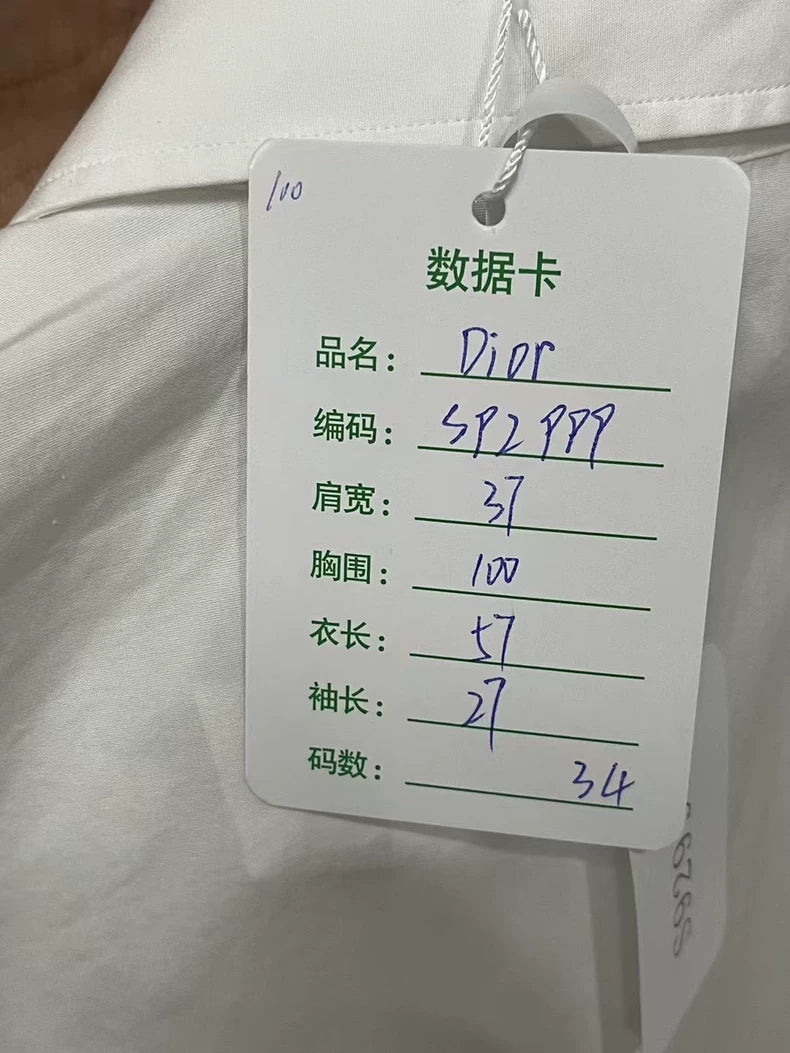 100
数据卡
品名: Dior
编码: S92999
肩宽: 37
胸围: 100
衣长: 57
袖长: 27
码数: 34